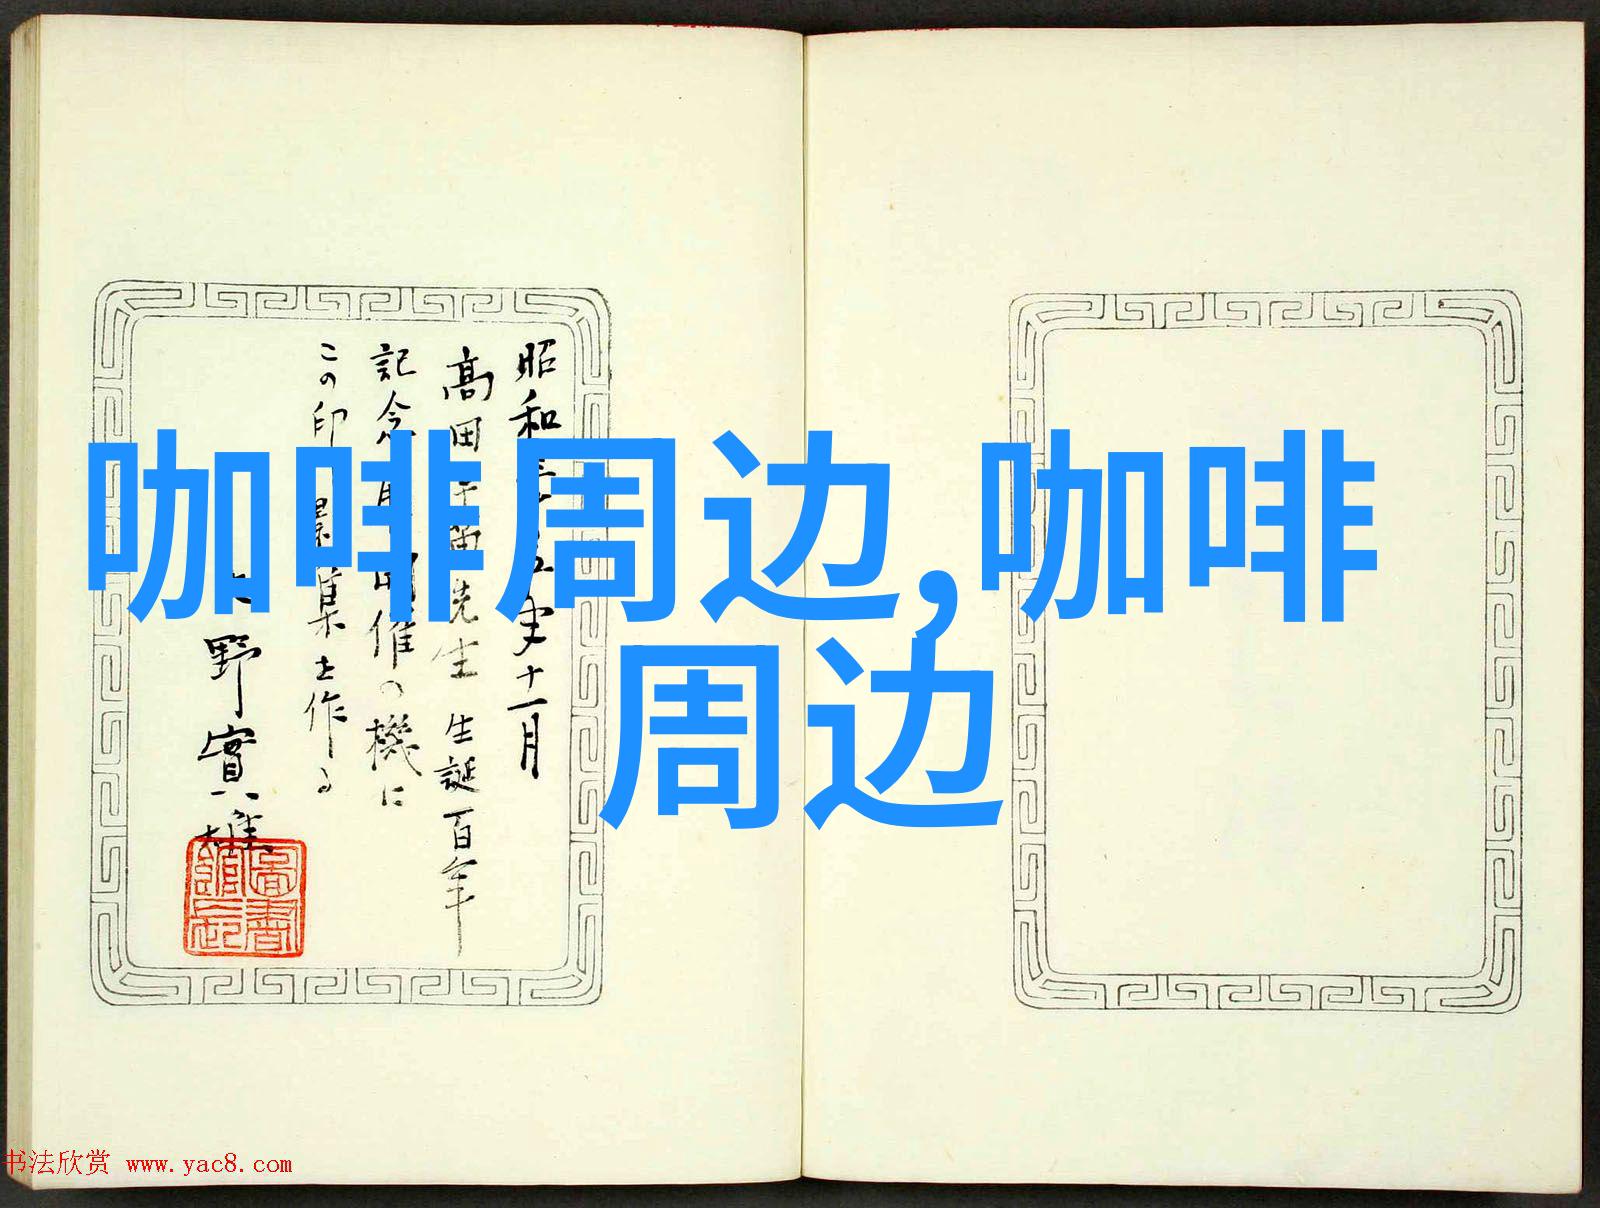 咖啡周边,咖啡
周边
昭和 五年十一月
高田 先生 生誕百年
記念 開催の機に
この印 集を作る
野實雄
圖書館長
书法欣赏 www.yac8.com